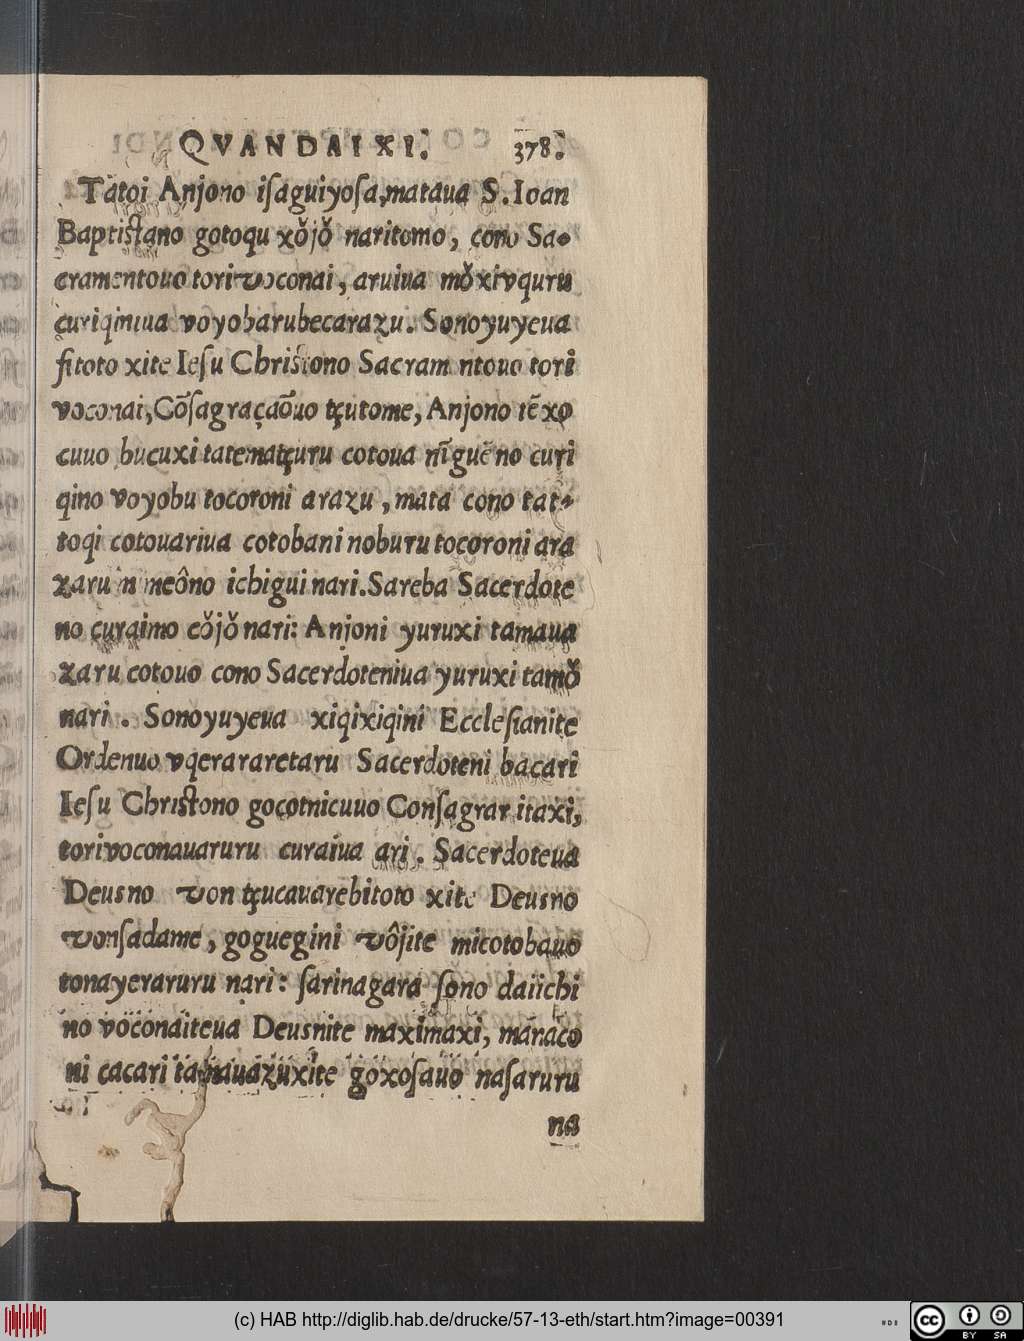 QVANDAI XI. 378.
Tatoi Anjono iſaguiyoſa, mataua S. Ioan
Baptiſtano gotoqu xǒjǒ naritomo, cono Sa-
cramentouo tori voconai, aruiua mǒxivquru
curiqiniua voyobarubecarazu. Sonoyuyeua
fitoto xite Ieſu Chriſtono Sacramentouo tori
voconai, Cōſagraçaõuo tçutome, Anjono iēxo
cuuo bucuxi tatematçuru cotoua nīguēno curi
qino voyobu tocoroni arazu, mata cono tat-
toqi cotouariua cotobani noburu tocoroni ara
zaru nmeôno ichigui nari. Sareba Sacerdote
no curaimo cǒjǒ nari: Anjoni yuruxi tamaua
zaru cotouo cono Sacerdoteniua yuruxi tamǒ
nari. Sonoyuyeua xiqixiqini Eccleſianite
Ordenuo vqerararetaru Sacerdoteni bacari
Ieſu Chriſtono gocotnicuuo Conſagrar itaxi,
torivoconauaruru curaiua ari. Sacerdoteua
Deusno von tçucauarebitoto xite Deusno
vonſadame, goguegini vôjite micotobauo
tonayeraruru nari: ſarinagara ſono daiichi
no voconaiteua Deusnite maximaxi, manaco
ni cacari tamauazuxite goxoſauo naſaruru
na
(c) HAB http://diglib.hab.de/drucke/57-13-eth/start.htm?image=00391
cc BY SA